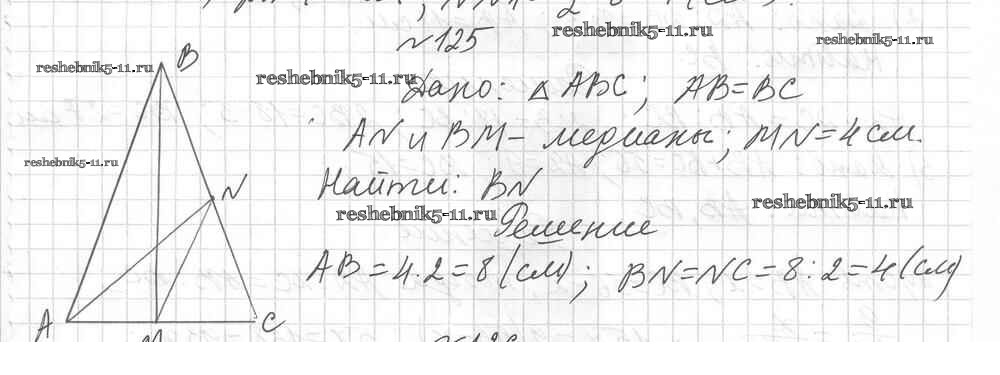 №125
reshebnik5-11.ru
reshebnik5-11.ru
B
reshebnik5-11.ru
reshebnik5-11.ru
Дано: △ ABC; AB=BC
AN и BM - медианы; MN=4 см.
reshebnik5-11.ru
N
Найти: BN
reshebnik5-11.ru
reshebnik5-11.ru
Решение
AB=4·2=8 (см); BN=NC=8:2=4(см)
A
C